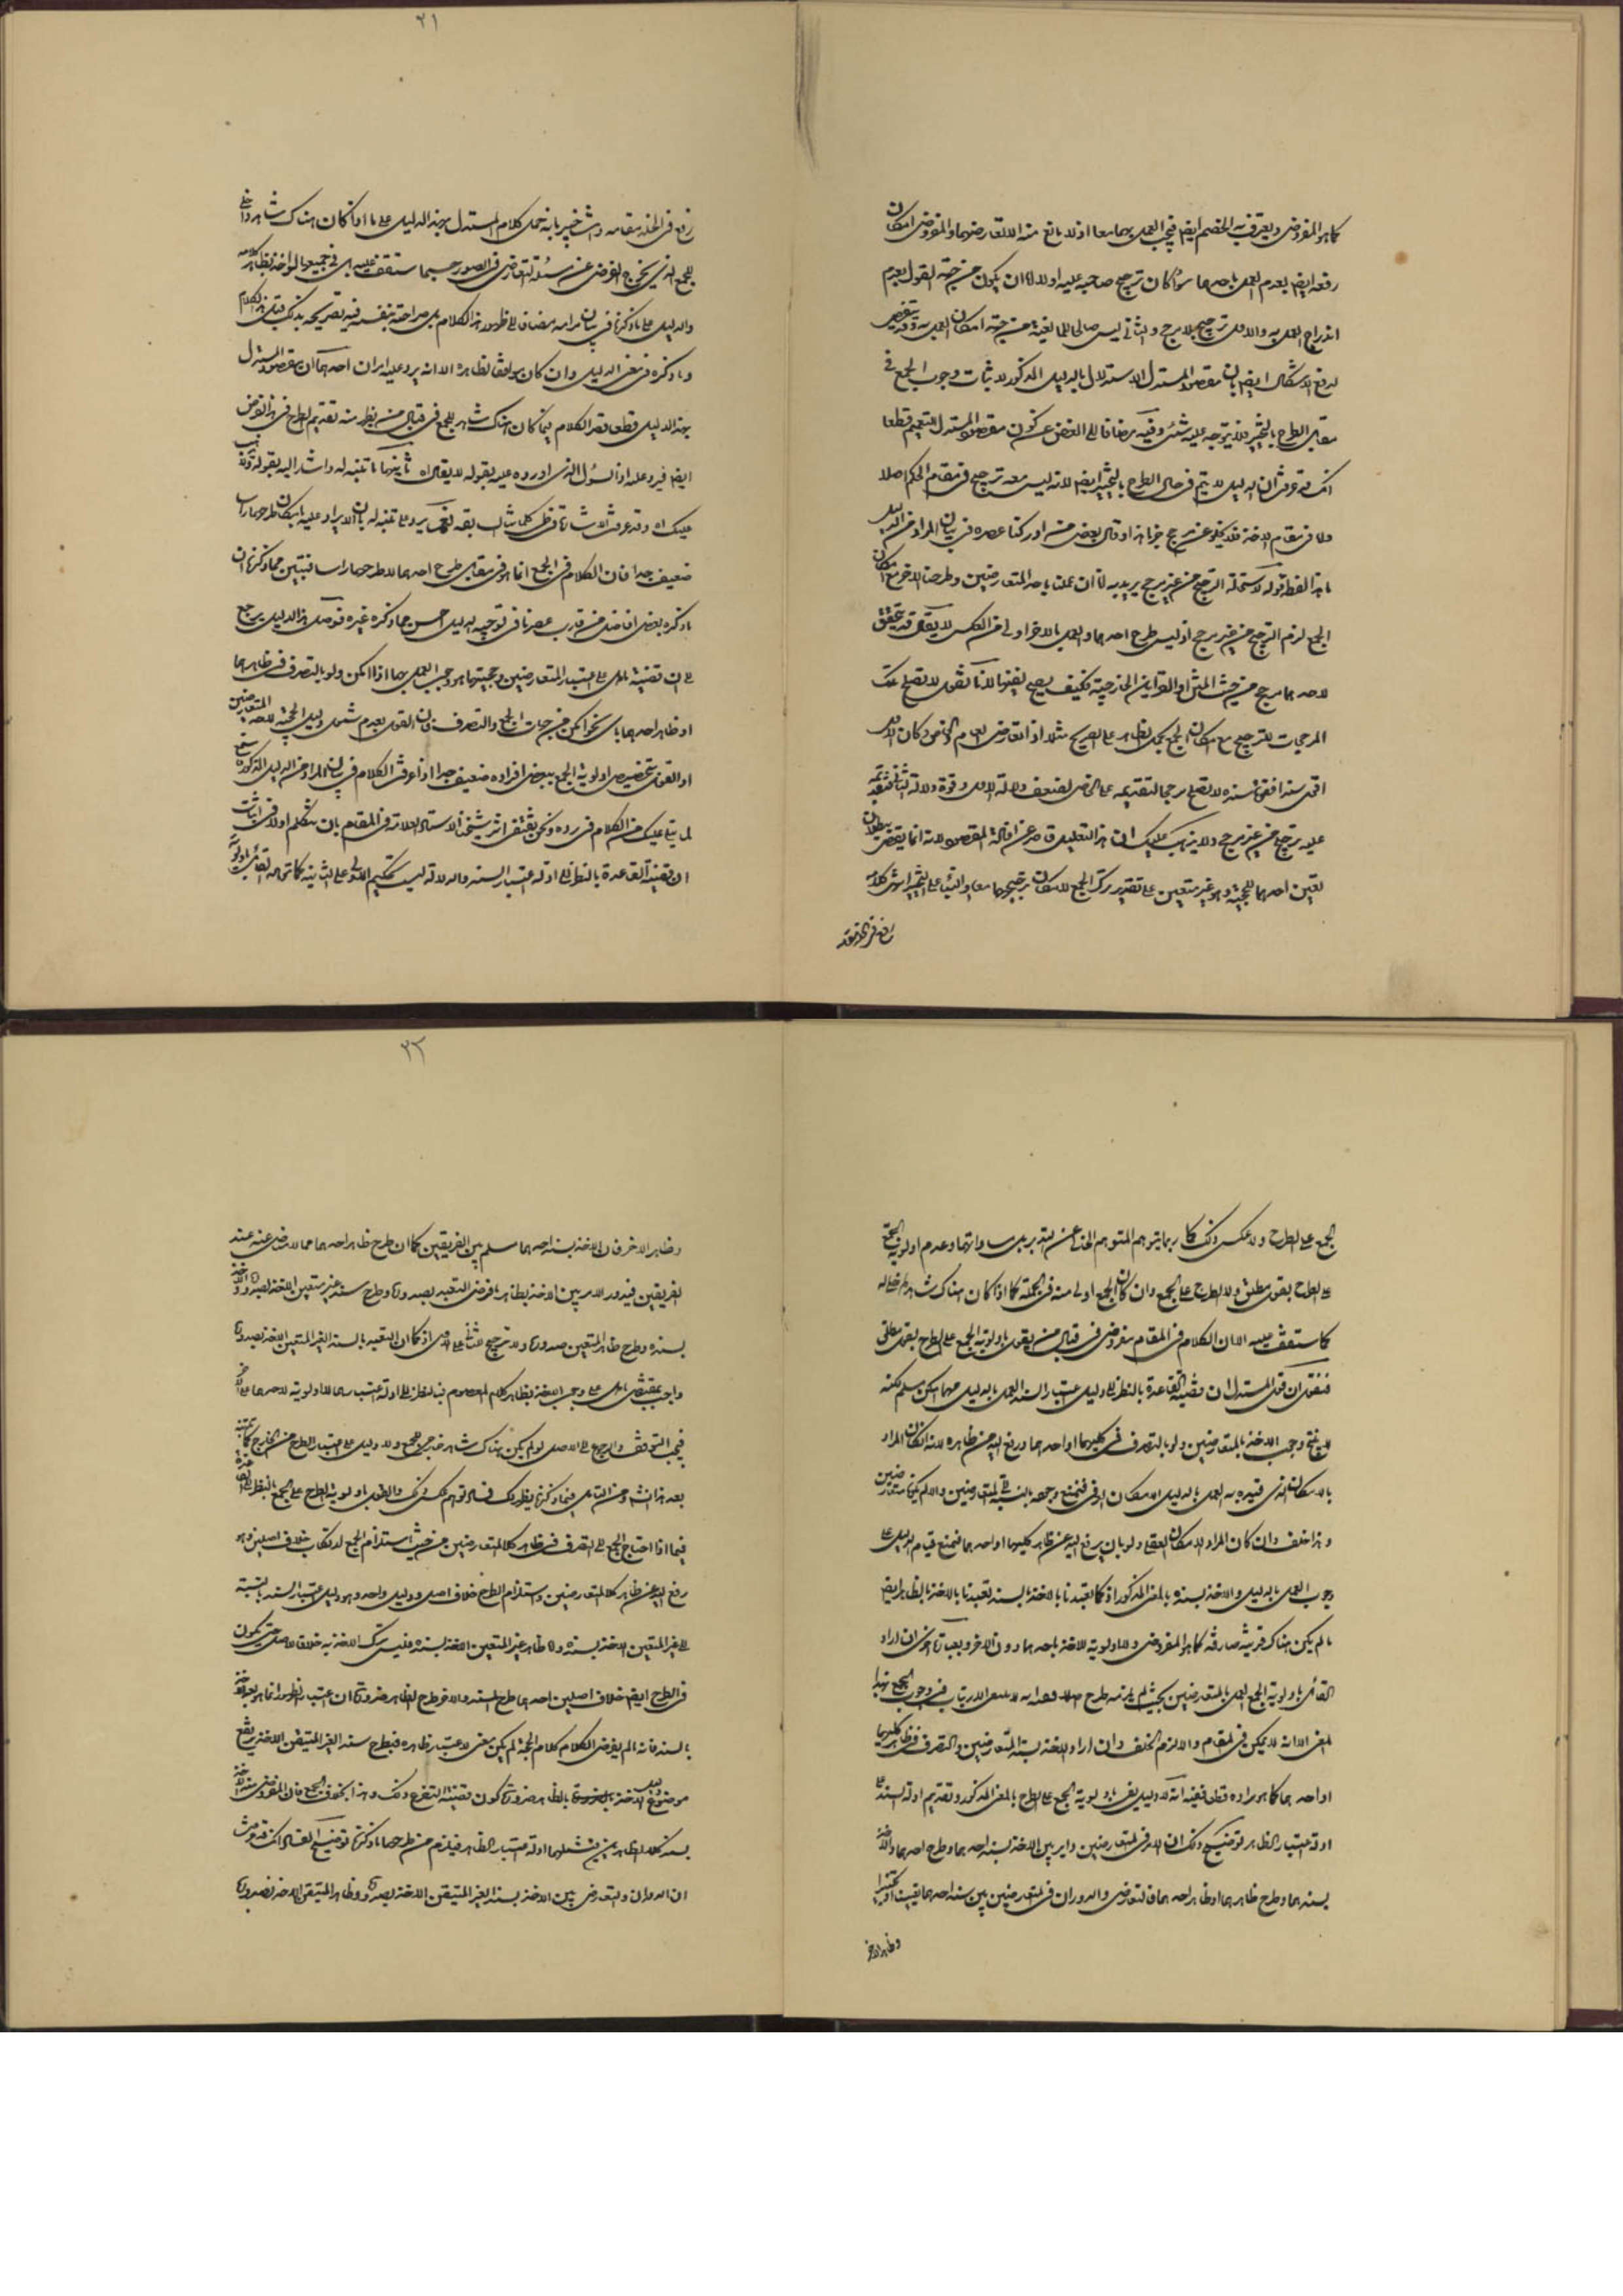 كما هو المفروض ويعترف به الخصم ايضا فيجب العمل بهما معا اذ لا مانع منه الا تعارضهما والمفروض امكان
رفعه ايضا بعدم العمل باحدهما سواء كان ترجيح صاحبه عليه اولا اما ان يكون من جهة القول بعدم
اندراج العمل به والاول ترجيح بلا مرجح والثاني ليس صالحا للمانعية من جهة امكان العمل به وقد يتفصى
لدفع الاشكال ايضا بان مقصود المستدل الاستدلال بالدليل المذكور لاثبات وجوب الجمع في
مقابل الطرح بالتخيير فلا يتوجه عليه شيء وفيه مضافا الى الغض عن كون مقصود المستدل التعميم قطعا
انك قد عرفت ان الدليل لا يتم في حال الطرح بالتخيير ايضا لانه ليس معه ترجيح في مقام الحكم اصلا
واما في مقام الاخذ فلا يخلو عن مرجح جزما هذا وقال بعض من ادركنا عصره في بيان المراد من الدليل
ما هذا لفظه قوله لاستحالة الترجيح من غير مرجح يريد به انا ان عملنا باحد المتعارضين وطرحنا الآخر مع امكان
الجمع لزم الترجيح من غير مرجح اذ ليس طرح احدهما والعمل بالآخر اولى من العكس لا يقال قد يتحقق
لاحدهما مرجح من حيث المتن او القراين الخارجية فكيف يصح نفيها لانا نقول لا تصلح تلك
المرجحات للترجيح مع امكان الجمع بحمل الظاهر على الصريح مثلا اذا تعارض العام والخاص وكان الاول
اقوى سندا فقوة سنده لا تصلح مرجحا لتقديمه على الخاص لضعف دلالة الاول وقوة دلالة الثاني فتقديمه
عليه ترجيح من غير مرجح ولا يذهب عليك ان هذا التعليل قاصر عن افادة المقصود لانه انما يقتضي بطلان
تعين احدهما للحجية وهو غير متعين على تقدير ترك الجمع لامكان ترجيحهما معا والبناء على التخيير انتهى كلامه
رفع في الخلد مقامه وانت خبير بانه حمل كلام المستدل بهذا الدليل على ما اذا كان هناك شاهد داخلي
للجمع الذي يخرج الفرض عن مسئلة التعارض في الصور حسبما ستقف عليه بل في جميعها لو اخذ بظاهر كلامه
والدليل على ما ذكرنا في بيان مرامه مضافا الى ظهور هذا الكلام بل صراحته بنفسه فيه تصريحه بذلك قبل هذا الكلام
وما ذكره في معنى الدليل وان كان موافقا لظاهره الا انه يرد عليه امران احدهما ان مقصود المستدل
بهذا الدليل قطعا قصر الكلام فيما كان هناك شاهد للجمع في قبال من يظهر منه تقديم الطرح في هذا الفرض
ايضا فيرد عليه اذا السؤال الذي اورده عليه بقوله لا يقال اه ثانيهما ما تنبه له واشار اليه بقوله ولا يذهب
عليك اه وقد عرفت الاشارة في طي كلماتنا السابقة نعم يرد على تنبه له بان الايراد عليه بامكان طرحهما راسا
ضعيف جدا فان الكلام في الجمع انما هو في مقابل طرح احدهما لا طرحهما راسا فتبين مما ذكرنا ان
ما ذكره بعض افاضل من قارب عصرنا في توجيه الدليل احسن مما ذكره غيره فحاصل هذا الدليل يرجع
الى ان قضية ما دل على اعتبار المتعارضين وحجيتهما هو وجوب العمل بهما اذا امكن ولو بالتصرف في ظاهرهما
او ظاهر احدهما باي نحو امكن من جهات الجمع والتصرف فان القول بعدم شمول دليل الحجية للمتعارضين
او القول بتخصيص اولوية الجمع ببعض افراده ضعيف جدا اذا عرفت الكلام في بيان المراد من الدليل المذكور
لما يتلى عليك من الكلام في رده ونحن نقتفي اثر شيخنا الاستاد العلامة في المقام بان نتكلم اولا في اثبات
ان قضية القاعدة بالنظر الى ادلة اعتبار السند والدلالة ليست تحكيم الاولى على الثانية كما توهمه القائل باولوية
الجمع على الطرح ولا عكس ذلك كما ربما يتوهم المتوهم الخالي عن التدبر بل مساواتهما وعدم اولوية الجمع
على الطرح بقول مطلق ولا الطرح على الجمع وان كان الجمع اولى منه في الجملة كما اذا كان هناك شاهد داخلي له
كما ستقف عليه الا ان الكلام في المقام مفروض في قبال من يقول باولوية الجمع على الطرح بقول مطلق
فنقول ان قول المستدل ان قضية القاعدة بالنظر الى دليل اعتبار السند العمل بالدليل مهما امكن مسلم لكنه
لا ينتج وجوب الاخذ بالمتعارضين ولو بالتصرف في كليهما او احدهما ورفع اليد عن ظاهره لانه ان كان المراد
بالامكان الذي قيد به العمل بالدليل الامكان العرفي فنمنع وجوده بالنسبة الى المتعارضين والا لم يكونا متعارضين
وهذا خلف وان كان المراد الامكان العقلي ولو بان يرفع اليد عن ظاهر كليهما او احدهما فنمنع قيام الدليل على
وجوب العمل بالدليل والاخذ بسنده بالمعنى المذكور اذ كما تعبدنا بالاخذ بالسند تعبدنا بالاخذ بالظاهر ايضا
ما لم يكن هناك قرينة صارفة كما هو المفروض ولا اولوية للاخذ باحدهما دون الآخر وبعبارة اخرى ان اراد
القائل باولوية الجمع العمل بالمتعارضين بحيث لم يلزمه طرح اصلا فهذا مما لا يعتريه الارتياب في وجوب الجمع بهذا
المعنى الا انه لا يمكن في المقام والا لزم الخلف وان اراد الاخذ بسند المتعارضين والتصرف في ظاهر كليهما
او احدهما كما هو مراده قطعا ففيه انه لا دليل يفي باولوية الجمع على الطرح بالمعنى المذكور وتقديم ادلة السند على
ادلة اعتبار الظاهر توضيح ذلك ان الامر في المتعارضين داير بين الاخذ بسند احدهما وطرح احدهما والاخذ
بسندهما وطرح ظاهرهما او ظاهر احدهما فالتعارض والدوران في المتعارضين بين سند احدهما
وظاهر الآخر
وظاهر الآخر فان الاخذ بسند احدهما مسلم بين الفريقين كما ان طرح ظاهر احدهما مما لا مناص عنه عند
الفريقين فيدور الامر بين الاخذ بظاهر ما فرض التعبد بصدوره وطرح سند غير متعين الاخذ بصدوره والاخذ
بسنده وطرح ظاهر المتعين صدوره ولا ترجيح للثاني على الاول اذ كما ان التعبد بالسند الغير المتعين الاخذ بصدوره
واجب بمقتضى ما دل على وجوب الاخذ بظاهر كلام المعصوم فبالنظر الى ادلة اعتبارهما لا اولوية لاحدهما على الآخر
فيجب التوقف والرجوع الى الاصل لو لم يكن هناك شاهد خارجي للجمع ولا دليل على اعتبار الطرح من الخارج
بعد هذا انشاء الله ومن التأمل فيما ذكرنا يظهر لك فساد توهم عكس ذلك والقول باولوية الطرح على الجمع بالنظر الى القاعدة
فيما اذا احتاج الجمع الى التصرف في ظاهر كلا المتعارضين من حيث استلزام الجمع لارتكاب خلاف اصلين وهو
رفع اليد عن ظاهر كلا المتعارضين واستلزام الطرح خلاف اصل ودليل واحد وهو دليل اعتبار السند بالنسبة
الى غير المتعين الاخذ بسنده واما ظاهر غير المتعين الاخذ بسنده فليس ترك الاخذ به خلاف الاصل حتى يكون
في الطرح ايضا خلاف اصلين احدهما طرح السند والآخر طرح الظاهر ضرورة ان اعتبار الظهور انما هو بعد الاخذ
بالسند فانه ما لم يفرض الكلام كلام الحجة لم يكن معنى لاعتبار ظاهره فبطرح سند الغير المتيقن الاخذ يرتفع
موضوع الاخذ بالظاهر ضرورة كون قضية التفرع ذلك وهذا بخلاف الجمع فان المفروض
بسند كلا الظاهرين فيشملهما ادلة اعتبار الظاهر فيلزم من طرحهما ما ذكرنا توضيح الفساد انك قد عرفت
ان الدوران والتعارض بين الاخذ بسند الغير المتيقن الاخذ بصدوره وظاهر المتيقن الاخذ بصدوره